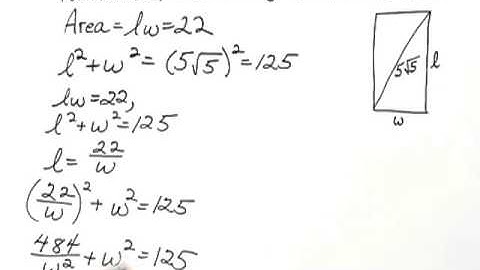 Area = lw = 22
l² + w² = (5√5)² = 125
lw = 22,
l² + w² = 125
l = 22/w
(22/w)² + w² = 125
484/w² + w² = 125
5√5
l
w